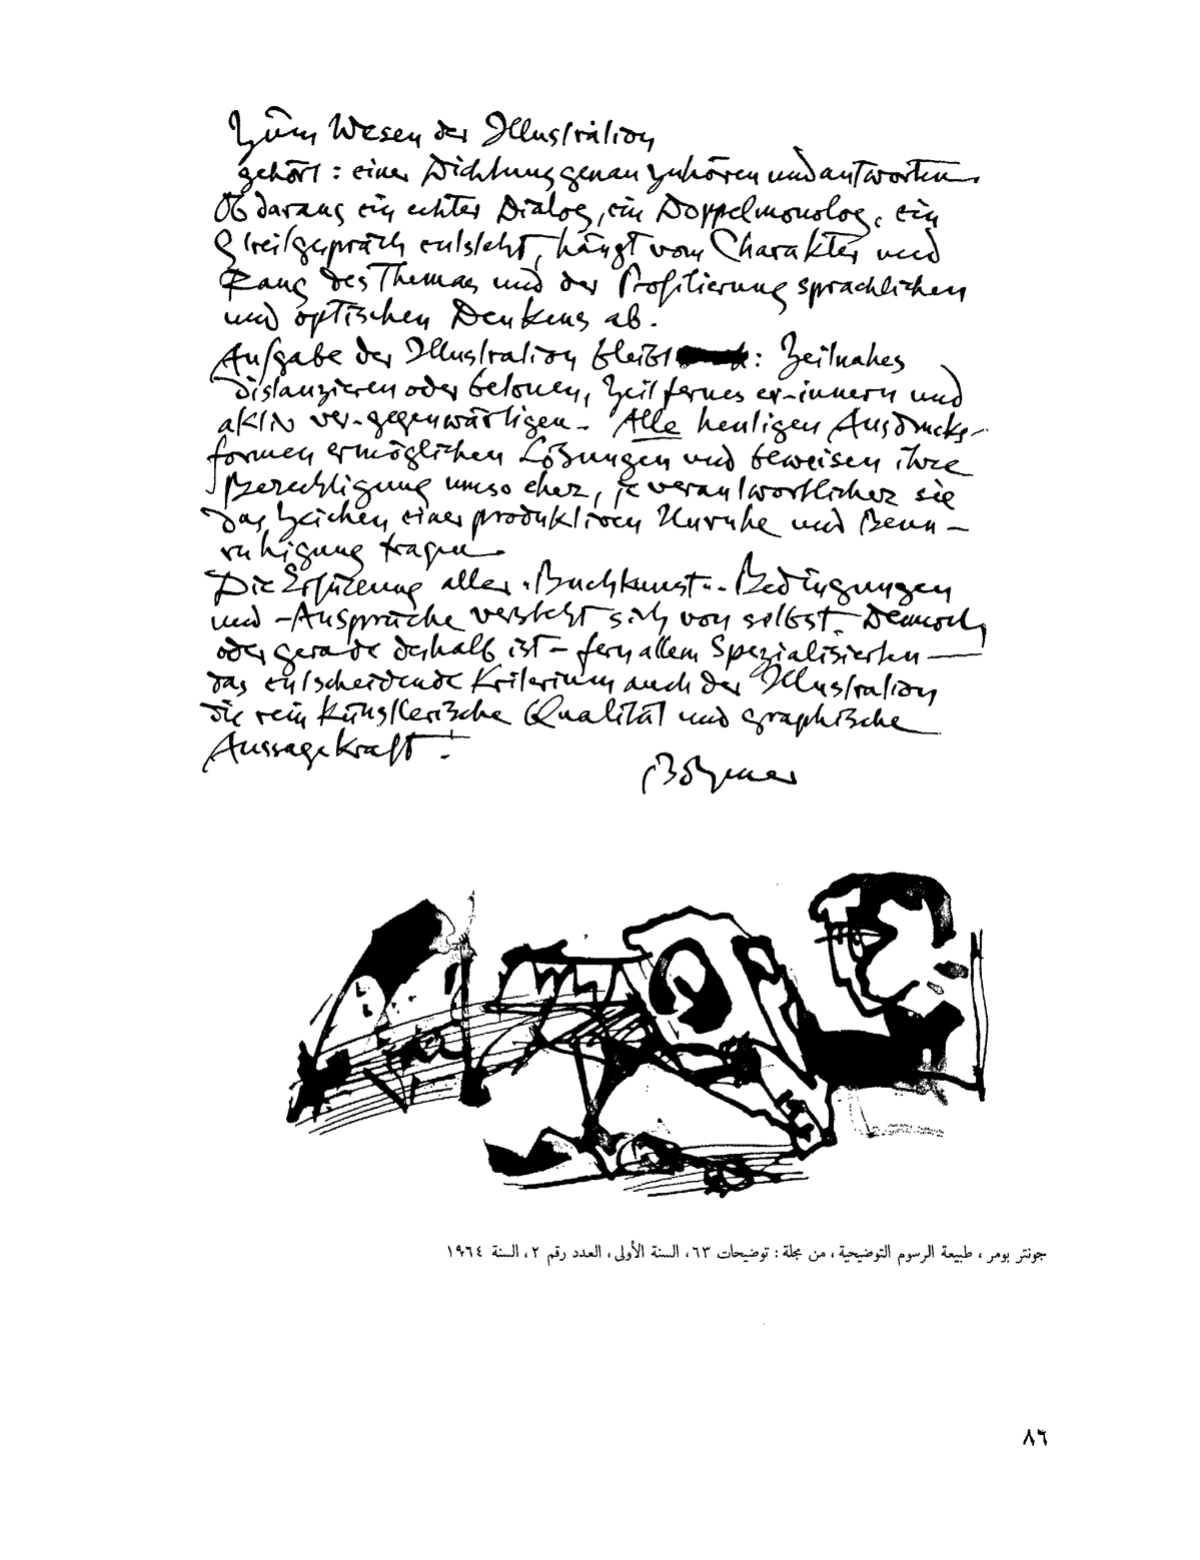 Zum Wesen der Illustration
gehört: einer Dichtung genau zuhören und antworten.
Ob daraus ein echter Dialog, ein Doppelmonolog, ein
Streitgespräch entsteht, hängt vom Charakter und
Rang des Themas und der Profilierung sprachlichen
und optischen Denkens ab.
Aufgabe der Illustration bleibt: Zeitnahes
distanzieren oder betonen, Zeitfernes er-innern und
aktiv ver-gegenwärtigen. Alle heutigen Ausdrucks-
formen ermöglichen Lösungen und beweisen ihre
Berechtigung umso eher, je verantwortlicher sie
das Zeichen einer produktiven Unruhe und Beun-
ruhigung tragen.
Die Erfüllung aller „Buchkunst“-Bedingungen
und -Ansprüche versteht sich von selbst. Dennoch
oder gerade deshalb ist – fern allem Spezialisierten –
das entscheidende Kriterium auch der Illustration
die rein künstlerische Qualität und graphische
Aussagekraft!
Böhmer
جونتر بومر ، طبيعة الرسوم التوضيحية ، من مجلة : توضيحات ٦٣ ، السنة الأولى ، العدد رقم ٢ ، السنة ١٩٦٤
٨٦